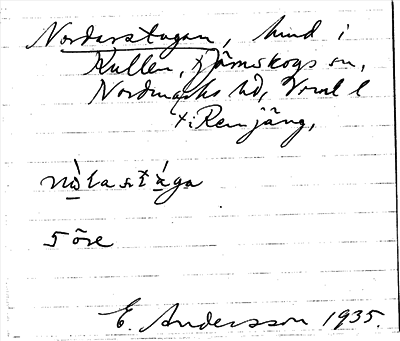 Nordarstugan, hmd i
Kullen, Järnskogs sn,
Nordmarks hd, Vrml l
+: Remjäng,
5 öre
E. Andersson 1935.